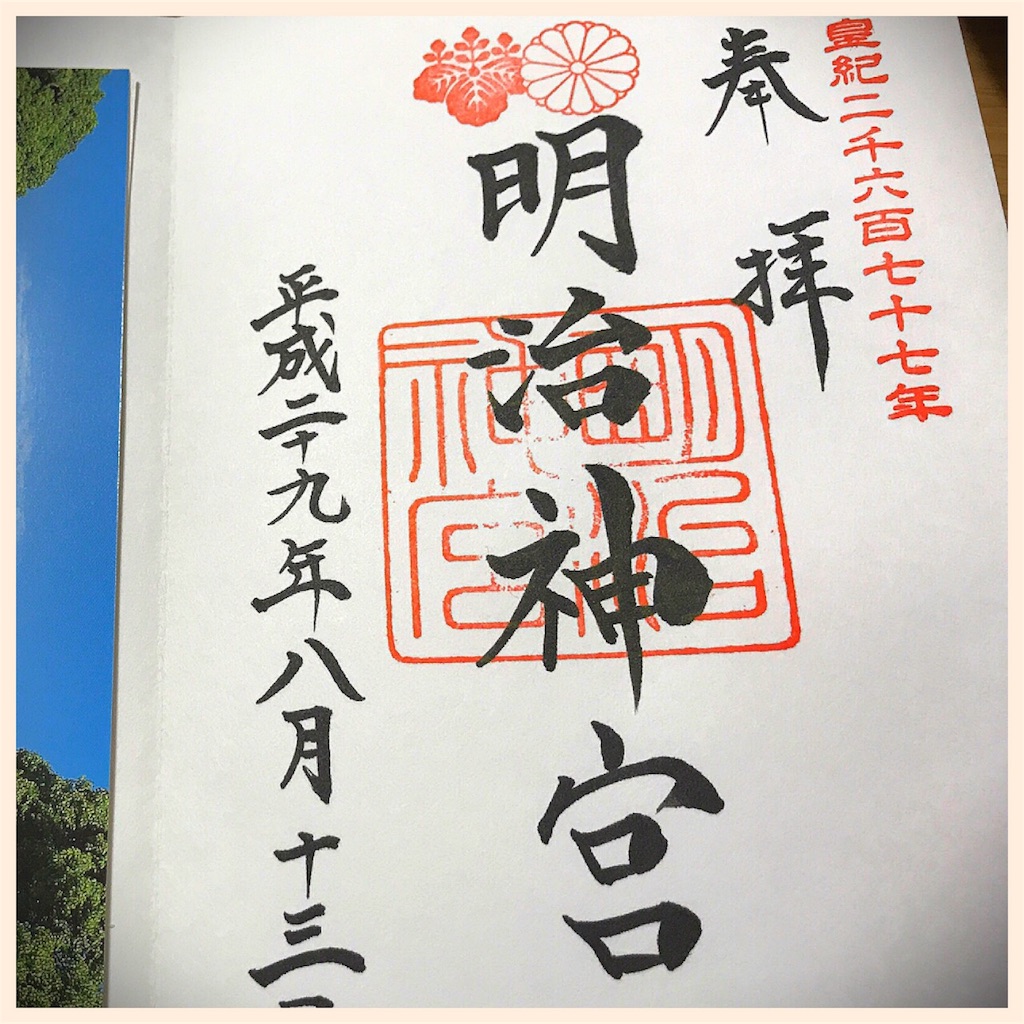 皇紀二千六百七十七年
奉拝
明治神宮
明治神宮
平成二十九年八月十三